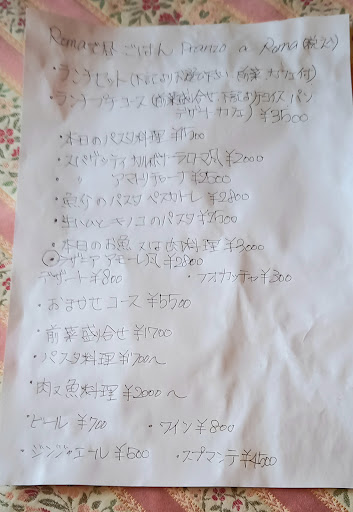 Romaで昼ごはん Pranzo a Roma (税込)
・ランチセット (下記よりお選び下さい 前菜 カフェ付)
・ランチプチコース (前菜盛り合せ 下記より チョイス パン
デザート カフェ) ¥3500
・本日のパスタ料理 ¥1500
・スパゲッティ カルボナーラローマ風 ¥2000
・ 〃 アマトリチャーナ ¥2500
・魚介のパスタ ペスカトーレ ¥2800
・生ハムとキノコのパスタ
・本日のお魚 又は肉料理 ¥3000
¥2800
デザート ¥800 ・フォカッチャ ¥300
・おまかせコース ¥5500
・前菜盛合せ ¥1700
・パスタ料理 ¥1700〜
・肉又魚料理 ¥2000〜
・ビール ¥700 ・ワイン ¥800
・ジンジャエール ¥500 ・スプマンテ ¥4500